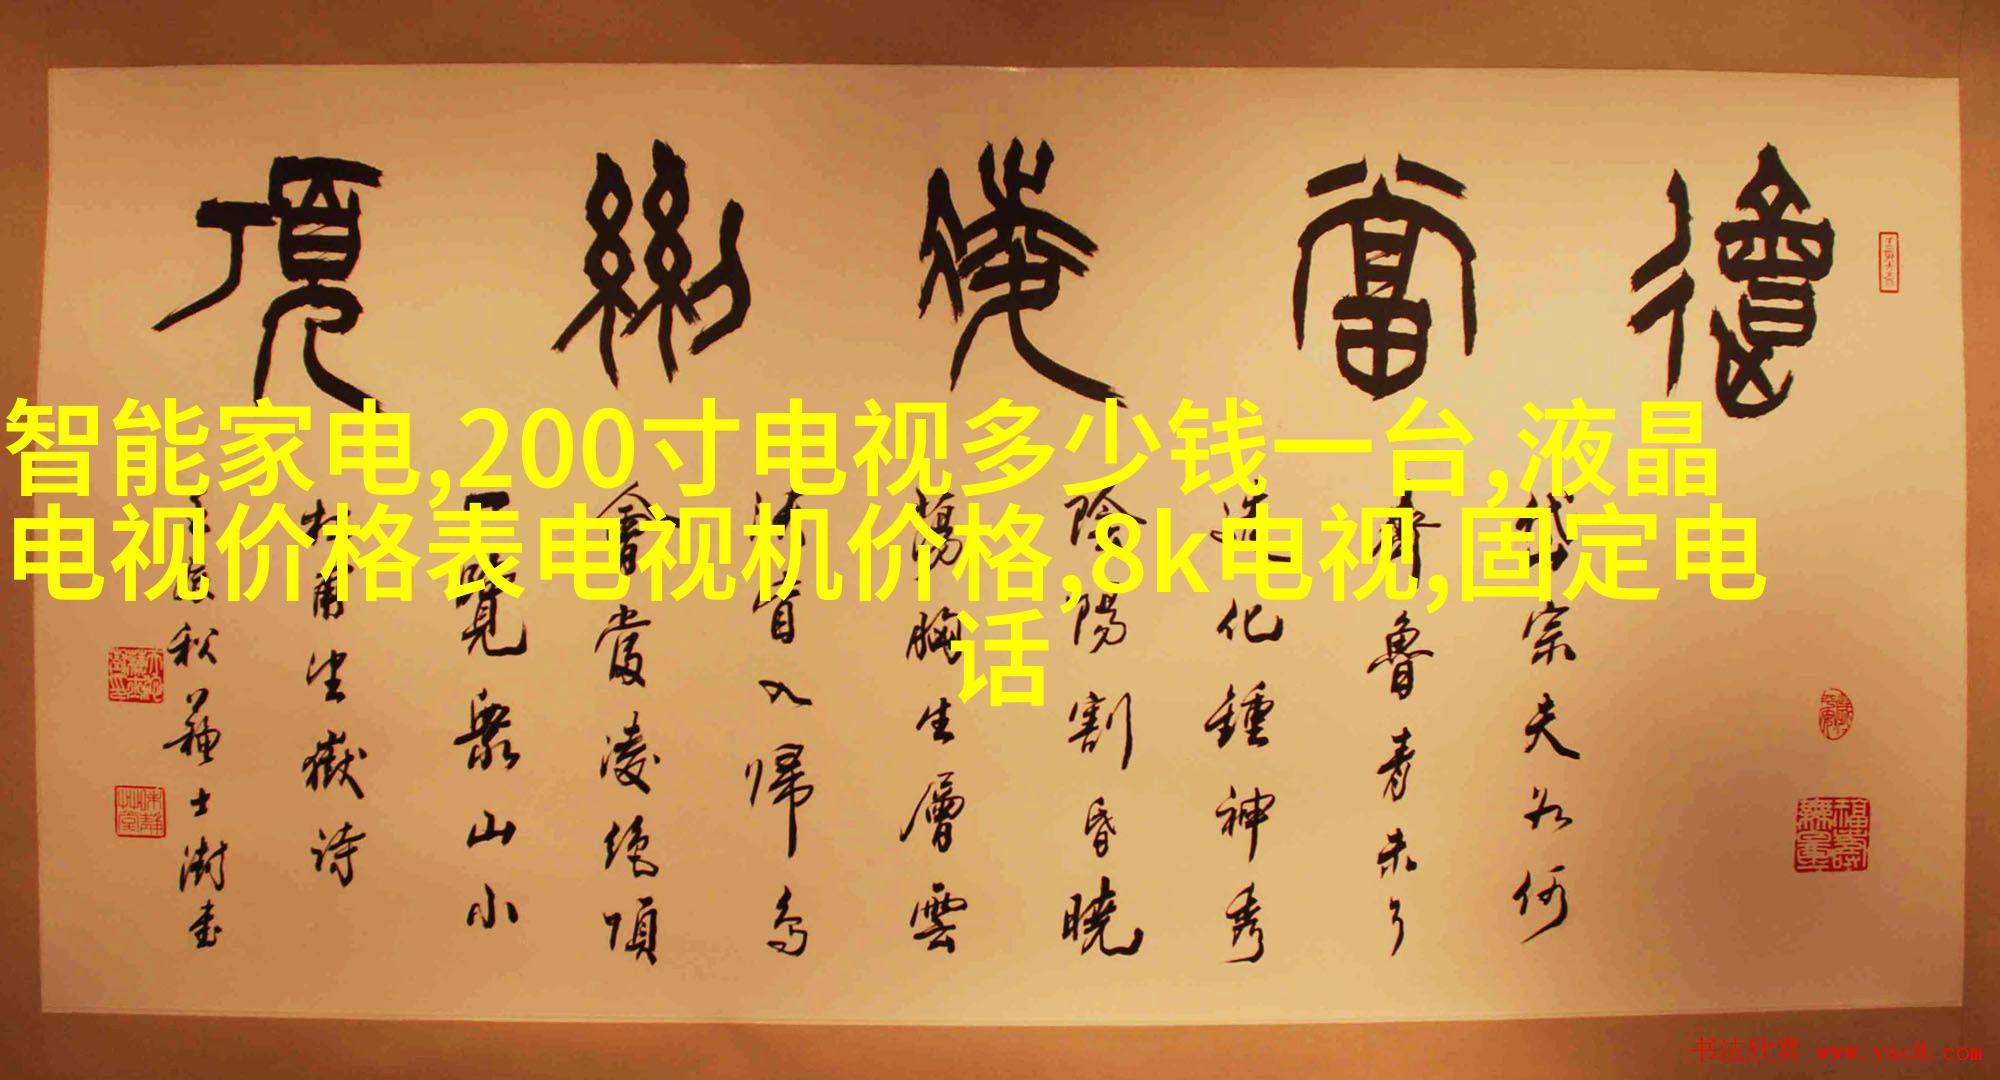 會當凌絕頂
岱宗夫如何
齊魯青未了
造化鍾神秀
陰陽割昏曉
蕩胸生層雲
決眥入歸鳥
會當凌絕頂
一覽眾山小
杜甫望嶽詩
秋蘇士澍書
智能家电,200寸电视多少钱一台,液晶
电视价格表电视机价格,8k电视,固定电
话
福壽無量
书法欣赏 www.yac8.com